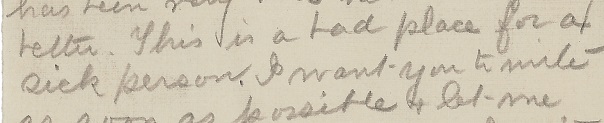 has been very
better. This is a bad place for a
sick person. I want you to write
as soon as possible & let me